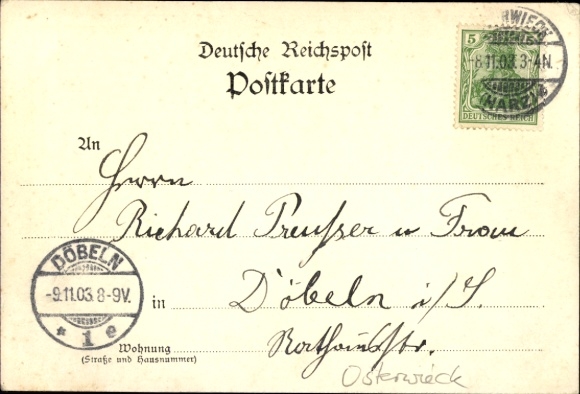 Deutsche Reichspost
Postkarte
5 5
DEUTSCHES REICH
RWIECK
-8.11.03.3-4N.
(HARZ)
An
Herrn
Richard Preusser u Frau
DÖBELN
-9.11.03.8-9V.
* 1 e
in Döbeln i/S.
Wohnung
(Straße und Hausnummer)
Rathausstr.
Osterwieck